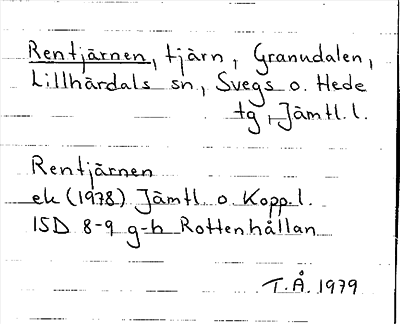 Rentjärnen, tjärn, Granudalen,
Lillhärdals sn., Svegs o. Hede
tg, Jämtl. l.
Rentjärnen
ek (1978) Jämtl. o Kopp. l.
15D 8-9 g-h Rottenhållan
T.Å. 1979